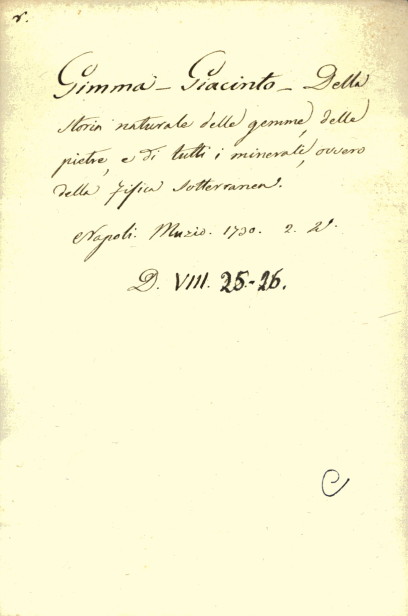 v.
Gimma - Giacinto - Della
storia naturale delle gemme, delle
pietre, e di tutti i minerali, ovvero
della fisica sotterranea.
Napoli. Muzio. 1730. 2.
D. VIII. 25-26.
C